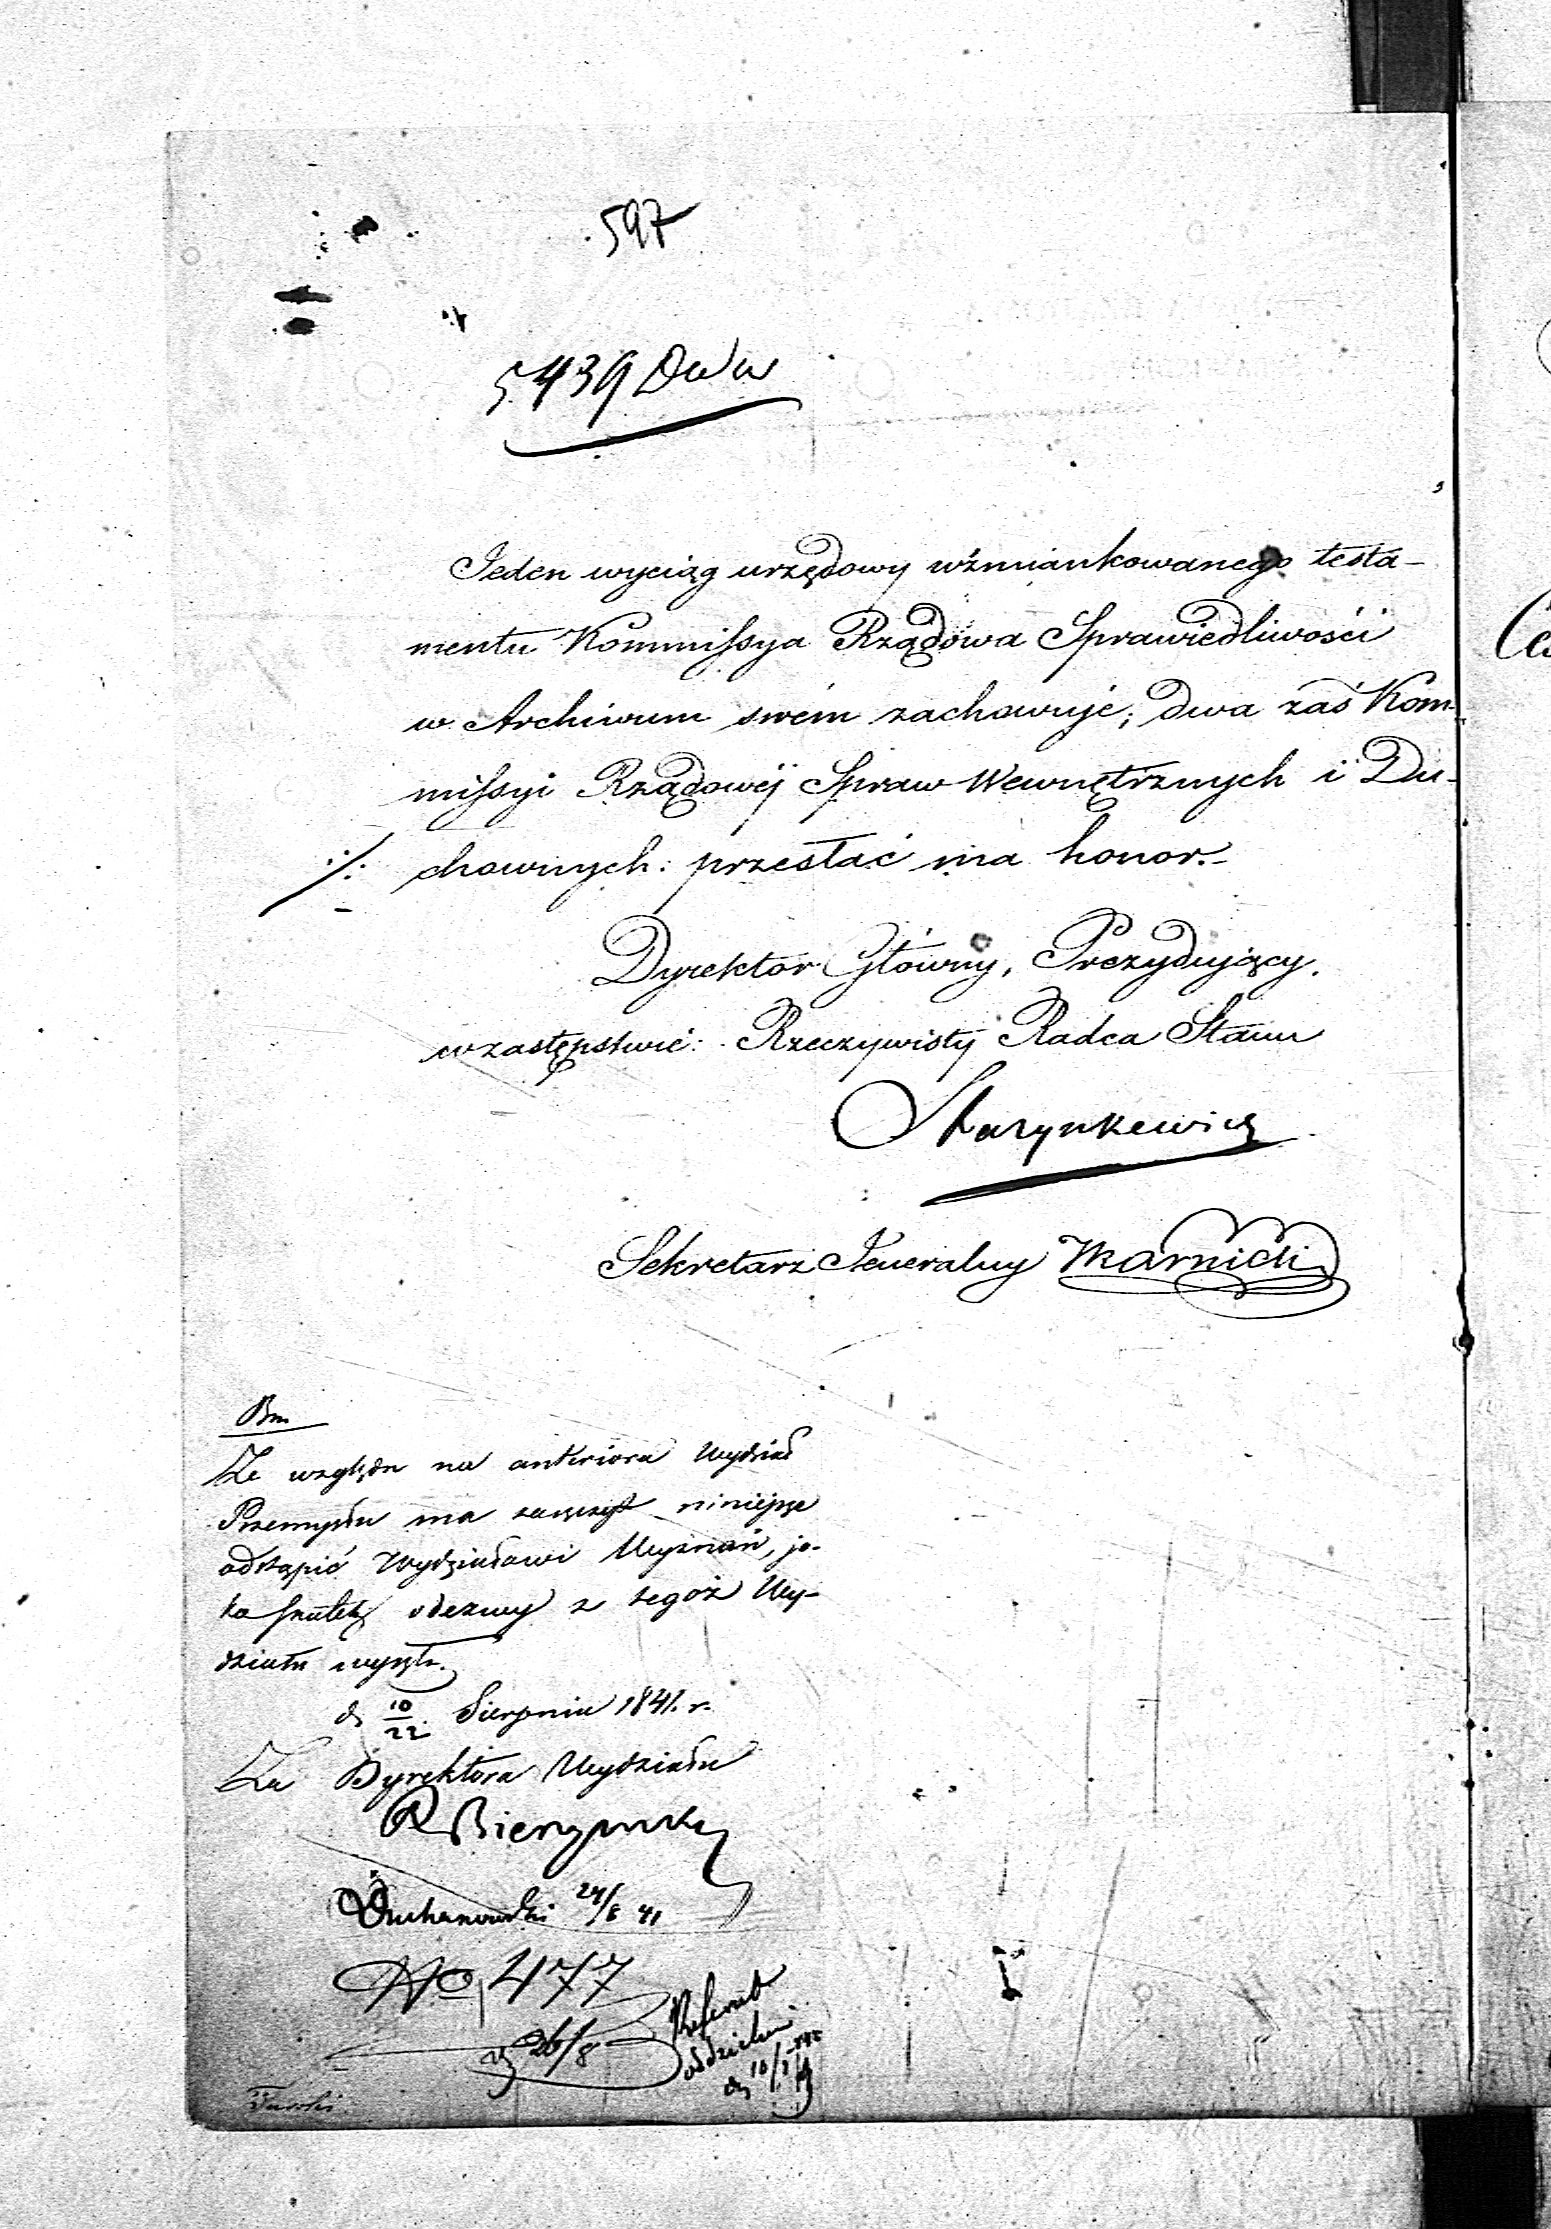 597
5439 DWW
Jeden wyciąg urzędowy wzmiankowanego testa-
mentu Kommissya Rządowa Sprawiedliwości
w Archiwum swém zachowuje; dwa zaś Kom-
missyi Rządowéj Spraw Wewnętrznych i Du-
chownych: przesłać ma honor.-
Dyrektor Główny, Prezydujący,
w zastępstwie: Rzeczywisty Radca Stanu
Starynkewicz
Sekretarz Jeneralny Karnicki
Bm
Ze względu na anteriora Wydział
Przemysłu ma zaszczyt niniejsze
odstąpić Wydziałowi Wyznań, ja-
ko skutek odezwy z tegoż Wy-
działu
d 10/22 Sierpnia 1841. r.
Za Dyrektora Wydziału
24/8 41
No 477
26/8
Referat